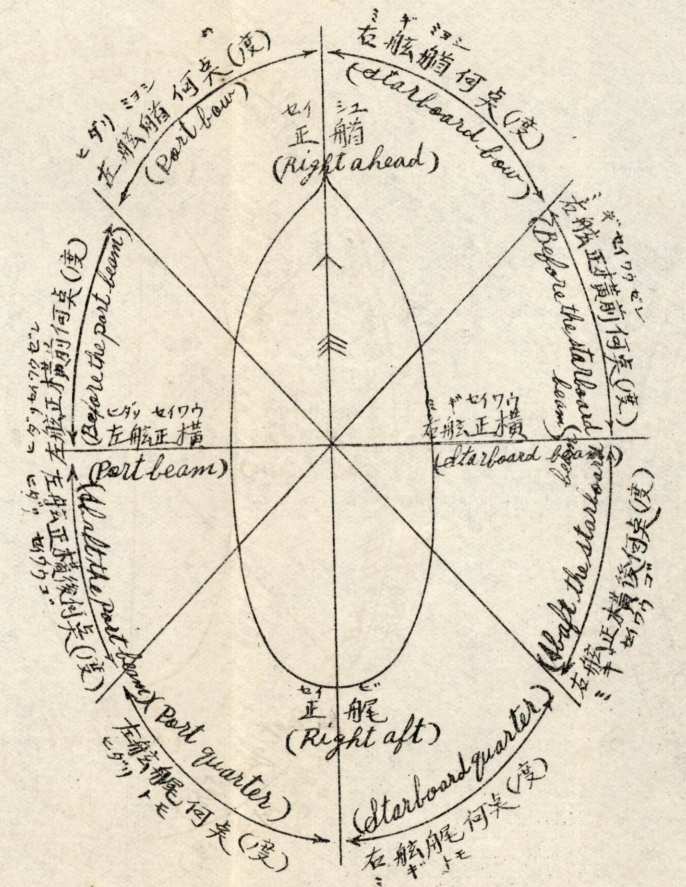 ミギ ミヨシ
右舷艏何点(度)
(Starboard bow)
ヒダリ ミヨシ
左舷艏何点(度)
(Port bow)
セイ シユ
正 艏
(Right ahead)
ミギ セイワウゼン
右舷正横前何点(度)
(Before the starboard beam)
ヒダリ セイワウゼン
左舷正横前何点(度)
(Before the port beam)
ヒダリ セイワウ
左舷正横
(Port beam)
ミギ セイワウ
右舷正横
(Starboard beam)
ヒダリ セイワウゴ
左舷正横後何点(度)
(Abaft the port beam)
ミギ セイワウゴ
右舷正横後何点(度)
(Abaft the starboard beam)
セイ ビ
正 艉
(Right aft)
(Port quarter)
左舷艉何点(度)
ヒダリ トモ
(Starboard quarter)
右舷艉何点(度)
ミギ トモ